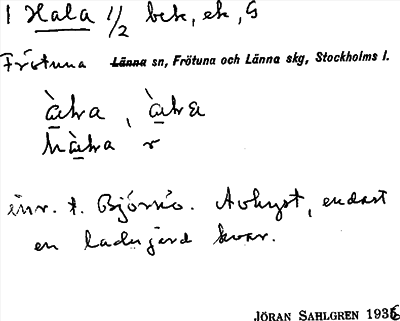 1 Hala 1/2 bek, ek, G
Frötuna Länna sn, Frötuna och Länna skg, Stockholms l.
r
inr. t. Björkö. Avhyst, endast
en ladugård kvar.
JÖRAN SAHLGREN 1936